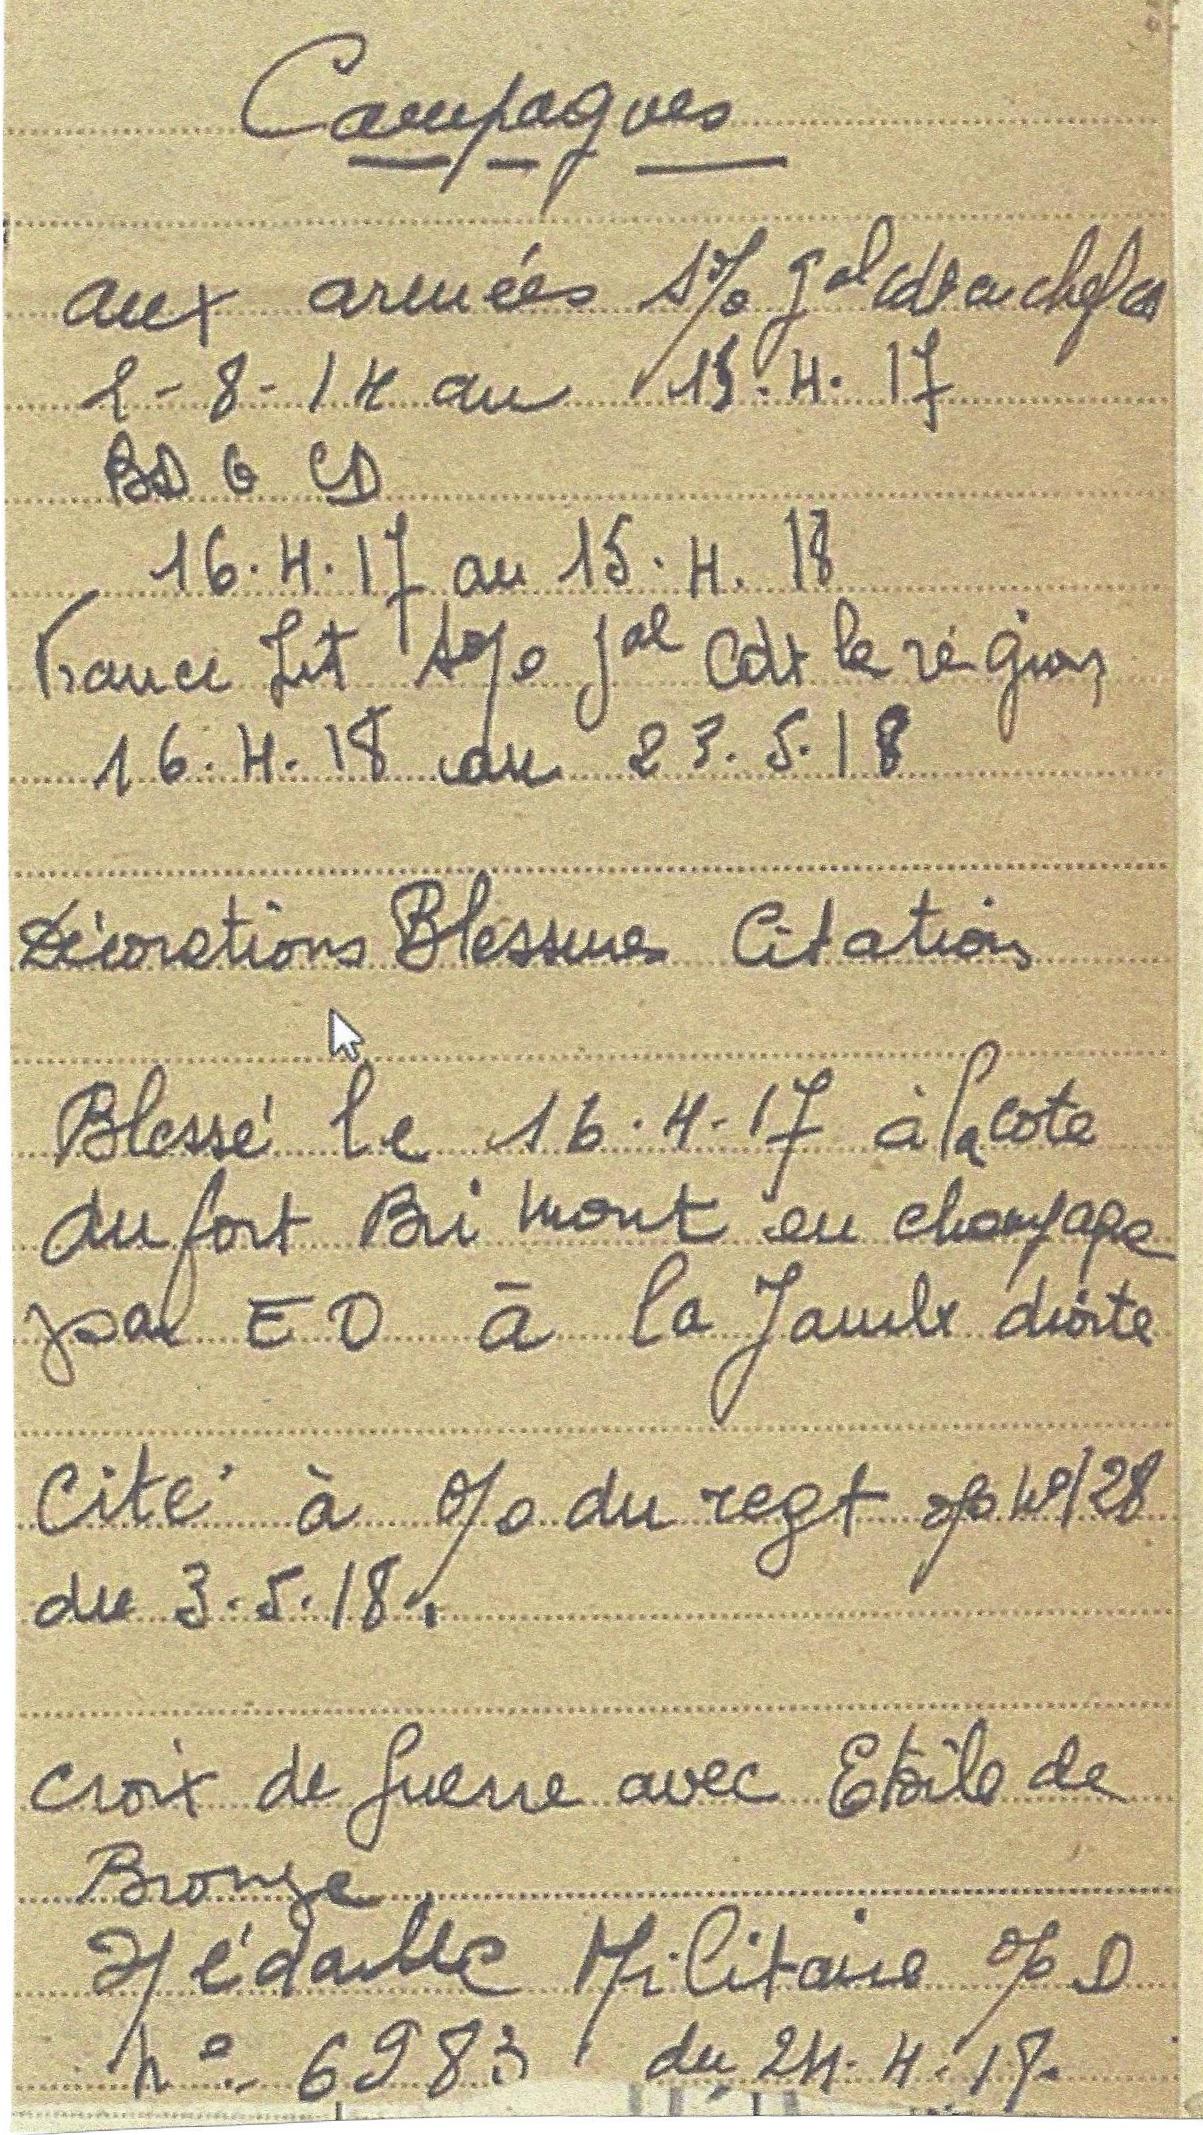 Campagnes
aux armées s/o gal cdt en chef
2-8-14 au 15.4.17
BD G CD
16.4.17 au 15.4.18
France Int s o/o gal Cdt la région
16.4.18 au 23.5.18
Décorations Blessures Citations
Blessé le 16.4.17 à la cote
du fort Brimont en champagne
par E O à la Jambe droite
Cité à o/o du regt o/o No 128
du 3.5.18.
croix de guerre avec Etoile de
Bronze
Médaille Militaire o/o D
n° 6983 du 24.4.17.